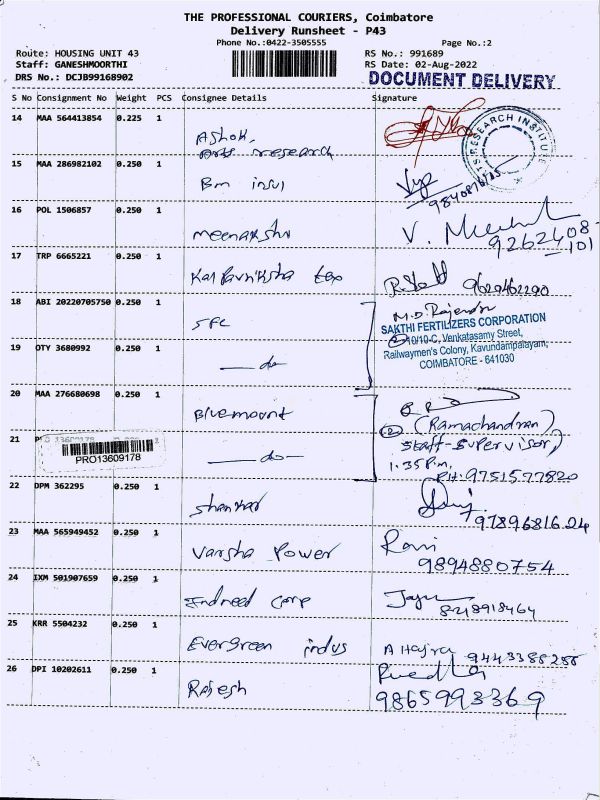 THE PROFESSIONAL COURIERS, Coimbatore
Delivery Runsheet - P43
Phone No.:0422-3505555 Page No.:2
Route: HOUSING UNIT 43 RS No.: 991689
Staff: GANESHMOORTHI RS Date: 02-Aug-2022
DRS No.: DCJB99168902 DOCUMENT DELIVERY
S No Consignment No Weight PCS Consignee Details Signature
14 MAA 564413854 0.225 1 Ashok,
Arts research
RESEARCH INSTITUTE
15 MAA 286982102 0.250 1 Bm
16 POL 1506857 0.250 1 meenakshi V.
17 TRP 6665221 0.250 1 tex 9629462290
18 ABI 20220705750 0.250 1 SFC M.D. Rajendra
SAKTHI FERTILIZERS CORPORATION
10/10-C, Venkatasamy Street,
19 OTY 3680992 0.250 1 —do— Railwaymen's Colony, Kavundampalayam,
COIMBATORE - 641030
20 MAA 276680698 0.250 1 Bluemount
(2) (Ramachandran)
21 —do— Staff-Supervisor,
PRO13609178 1.35 P.m,
PH: 9751577820
22 DPM 362295 0.250 1 shankar
9789681624
23 MAA 565949452 0.250 1 Varsha Power Ravi
9894880754
24 IXM 501907659 0.250 1 Indneed corp
8248918464
25 KRR 5504232 0.250 1 Evergreen indus A Hajra 9443388288
26 DPI 10202611 0.250 1 Rajesh
9865993369